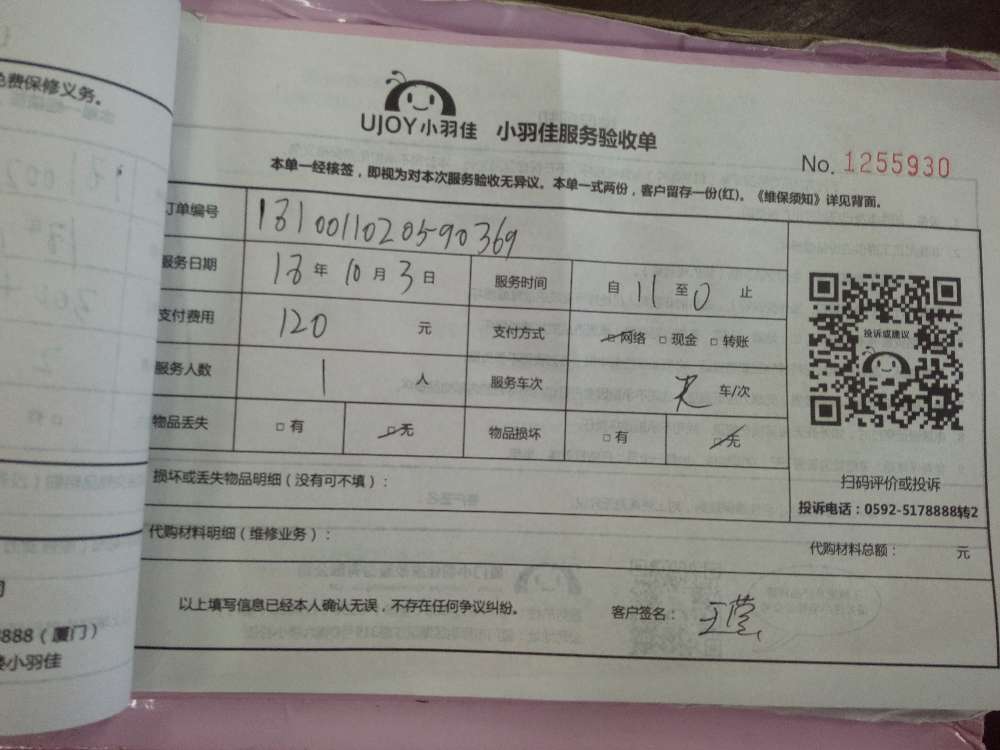 免费保修义务。
UJOY小羽佳 小羽佳服务验收单
No. 1255930
本单一经核签，即视为对本次服务验收无异议。本单一式两份，客户留存一份(红)。《维保须知》详见背面。
订单编号 1310011020590369
服务日期 18年10月3日 服务时间 自11至0止
支付费用 120 元 支付方式 网络 □现金 □转账
服务人数 1 人 服务车次 车/次
物品丢失 □有 无 物品损坏 □有 无
投诉或建议
扫码评价或投诉
投诉电话：0592-5178888转2
损坏或丢失物品明细（没有可不填）：
代购材料明细（维修业务）：
代购材料总额： 元
以上填写信息已经本人确认无误，不存在任何争议纠纷。
客户签名：王莹
8888（厦门）
小羽佳